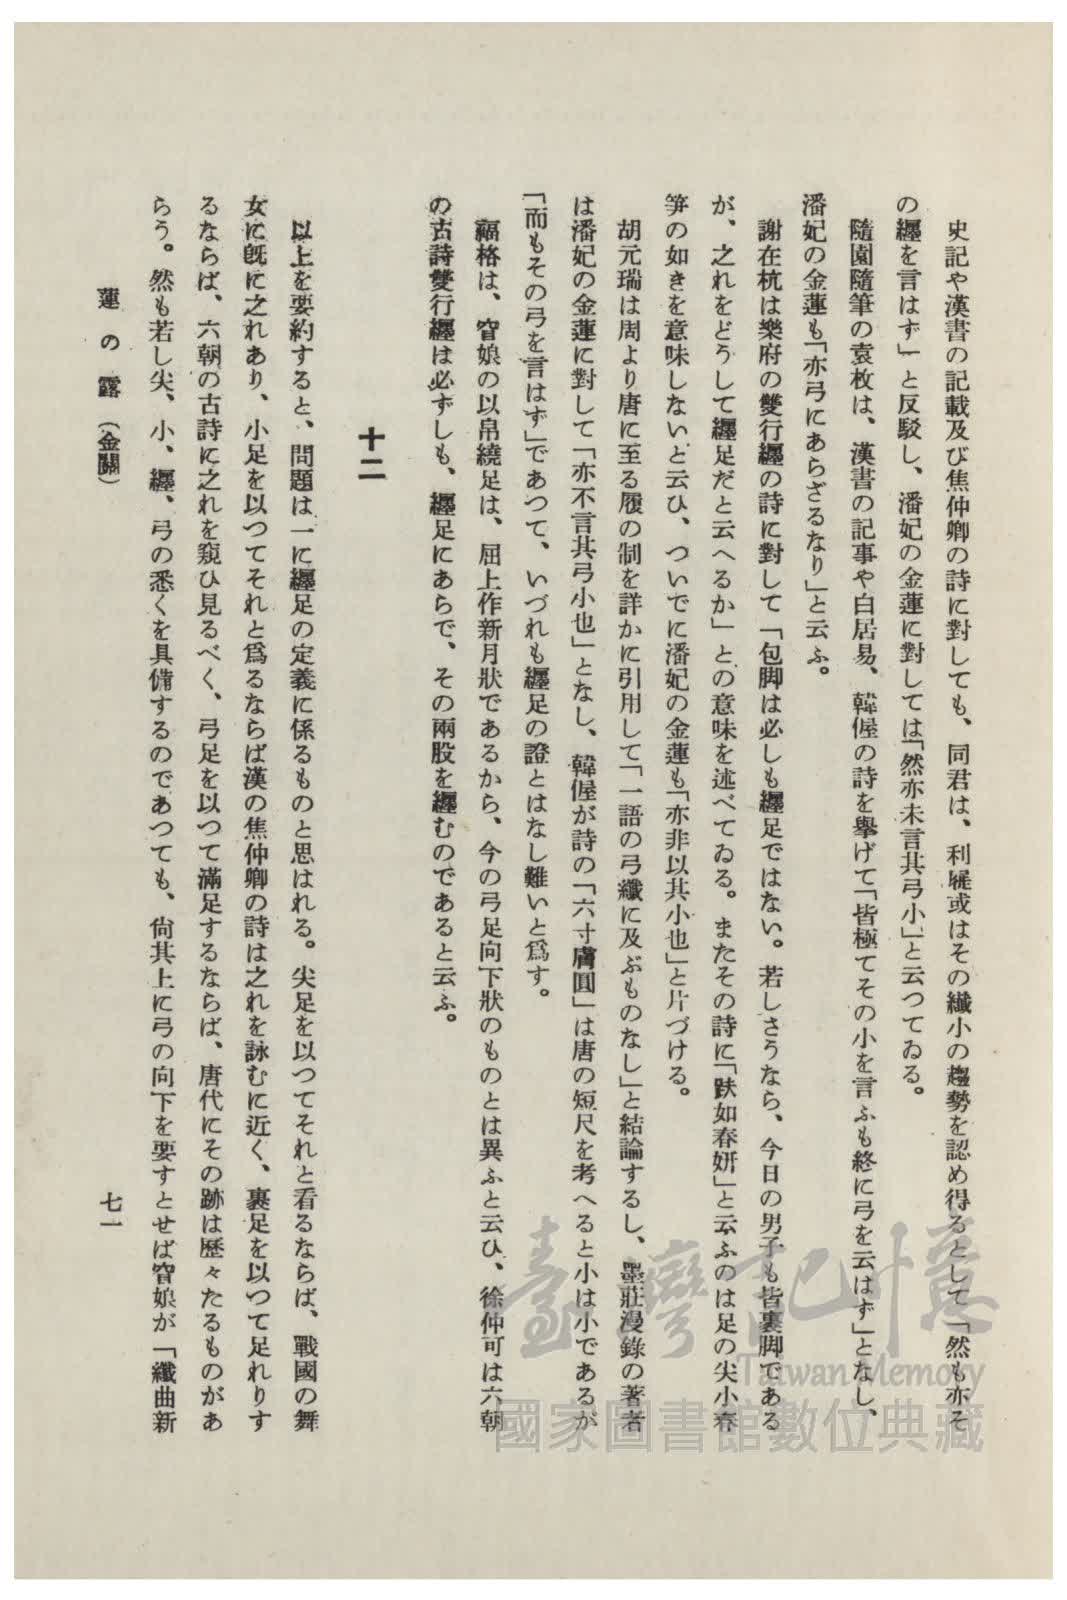 史記や漢書の記載及び焦仲卿の詩に對しても、同君は、利屣或はその纖小の趨勢を認め得るとして「然も亦そ
の纒を言はず」と反駁し、潘妃の金蓮に對しては「然亦未言其弓小」と云つてゐる。
隨園隨筆の袁枚は、漢書の記事や白居易、韓偓の詩を擧げて「皆極てその小を言ふも終に弓を云はず」となし、
潘妃の金蓮も「亦弓にあらざるなり」と云ふ。
謝在杭は樂府の雙行纒の詩に對して「包脚は必しも纒足ではない。若しさうなら、今日の男子も皆裹脚である
が、之れをどうして纒足だと云へるか」との意味を述べてゐる。またその詩に「趺如春妍」と云ふのは足の尖小春
笋の如きを意味しないと云ひ、ついでに潘妃の金蓮も「亦非以其小也」と片づける。
胡元瑞は周より唐に至る履の制を詳かに引用して「一語の弓纖に及ぶものなし」と結論するし、墨莊漫錄の著者
は潘妃の金蓮に對して「亦不言其弓小也」となし、韓偓が詩の「六寸膚圓」は唐の短尺を考へると小は小であるが
「而もその弓を言はず」であつて、いづれも纒足の證とはなし難いと爲す。
福格は、窅娘の以帛繞足は、屈上作新月狀であるから、今の弓足向下狀のものとは異ふと云ひ、徐仲可は六朝
の古詩雙行纒は必ずしも、纒足にあらで、その兩股を纒むのであると云ふ。
十二
以上を要約すると、問題は一に纒足の定義に係るものと思はれる。尖足を以つてそれと看るならば、戰國の舞
女に旣に之れあり、小足を以つてそれと爲るならば漢の焦仲卿の詩は之れを詠むに近く、裹足を以つて足れりす
るならば、六朝の古詩に之れを窺ひ見るべく、弓足を以つて滿足するならば、唐代にその跡は歷々たるものがあ
らう。然も若し尖、小、纒、弓の悉くを具備するのであつても、尙其上に弓の向下を要すとせば窅娘が「纖曲新
蓮の露（金關）
七一
臺灣記憶
Taiwan Memory
國家圖書館數位典藏